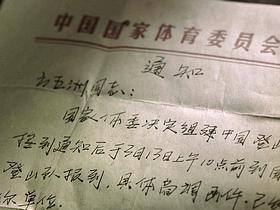 中国国家体育委员会
通知
方五洲同志：
国家体委决定组建中国登山
接到通知后于3月13日上午10点前到国
登山队报到，具体
单位